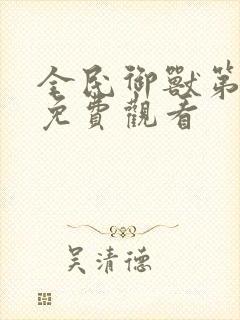 全民御獸第
免費觀看
吴清德